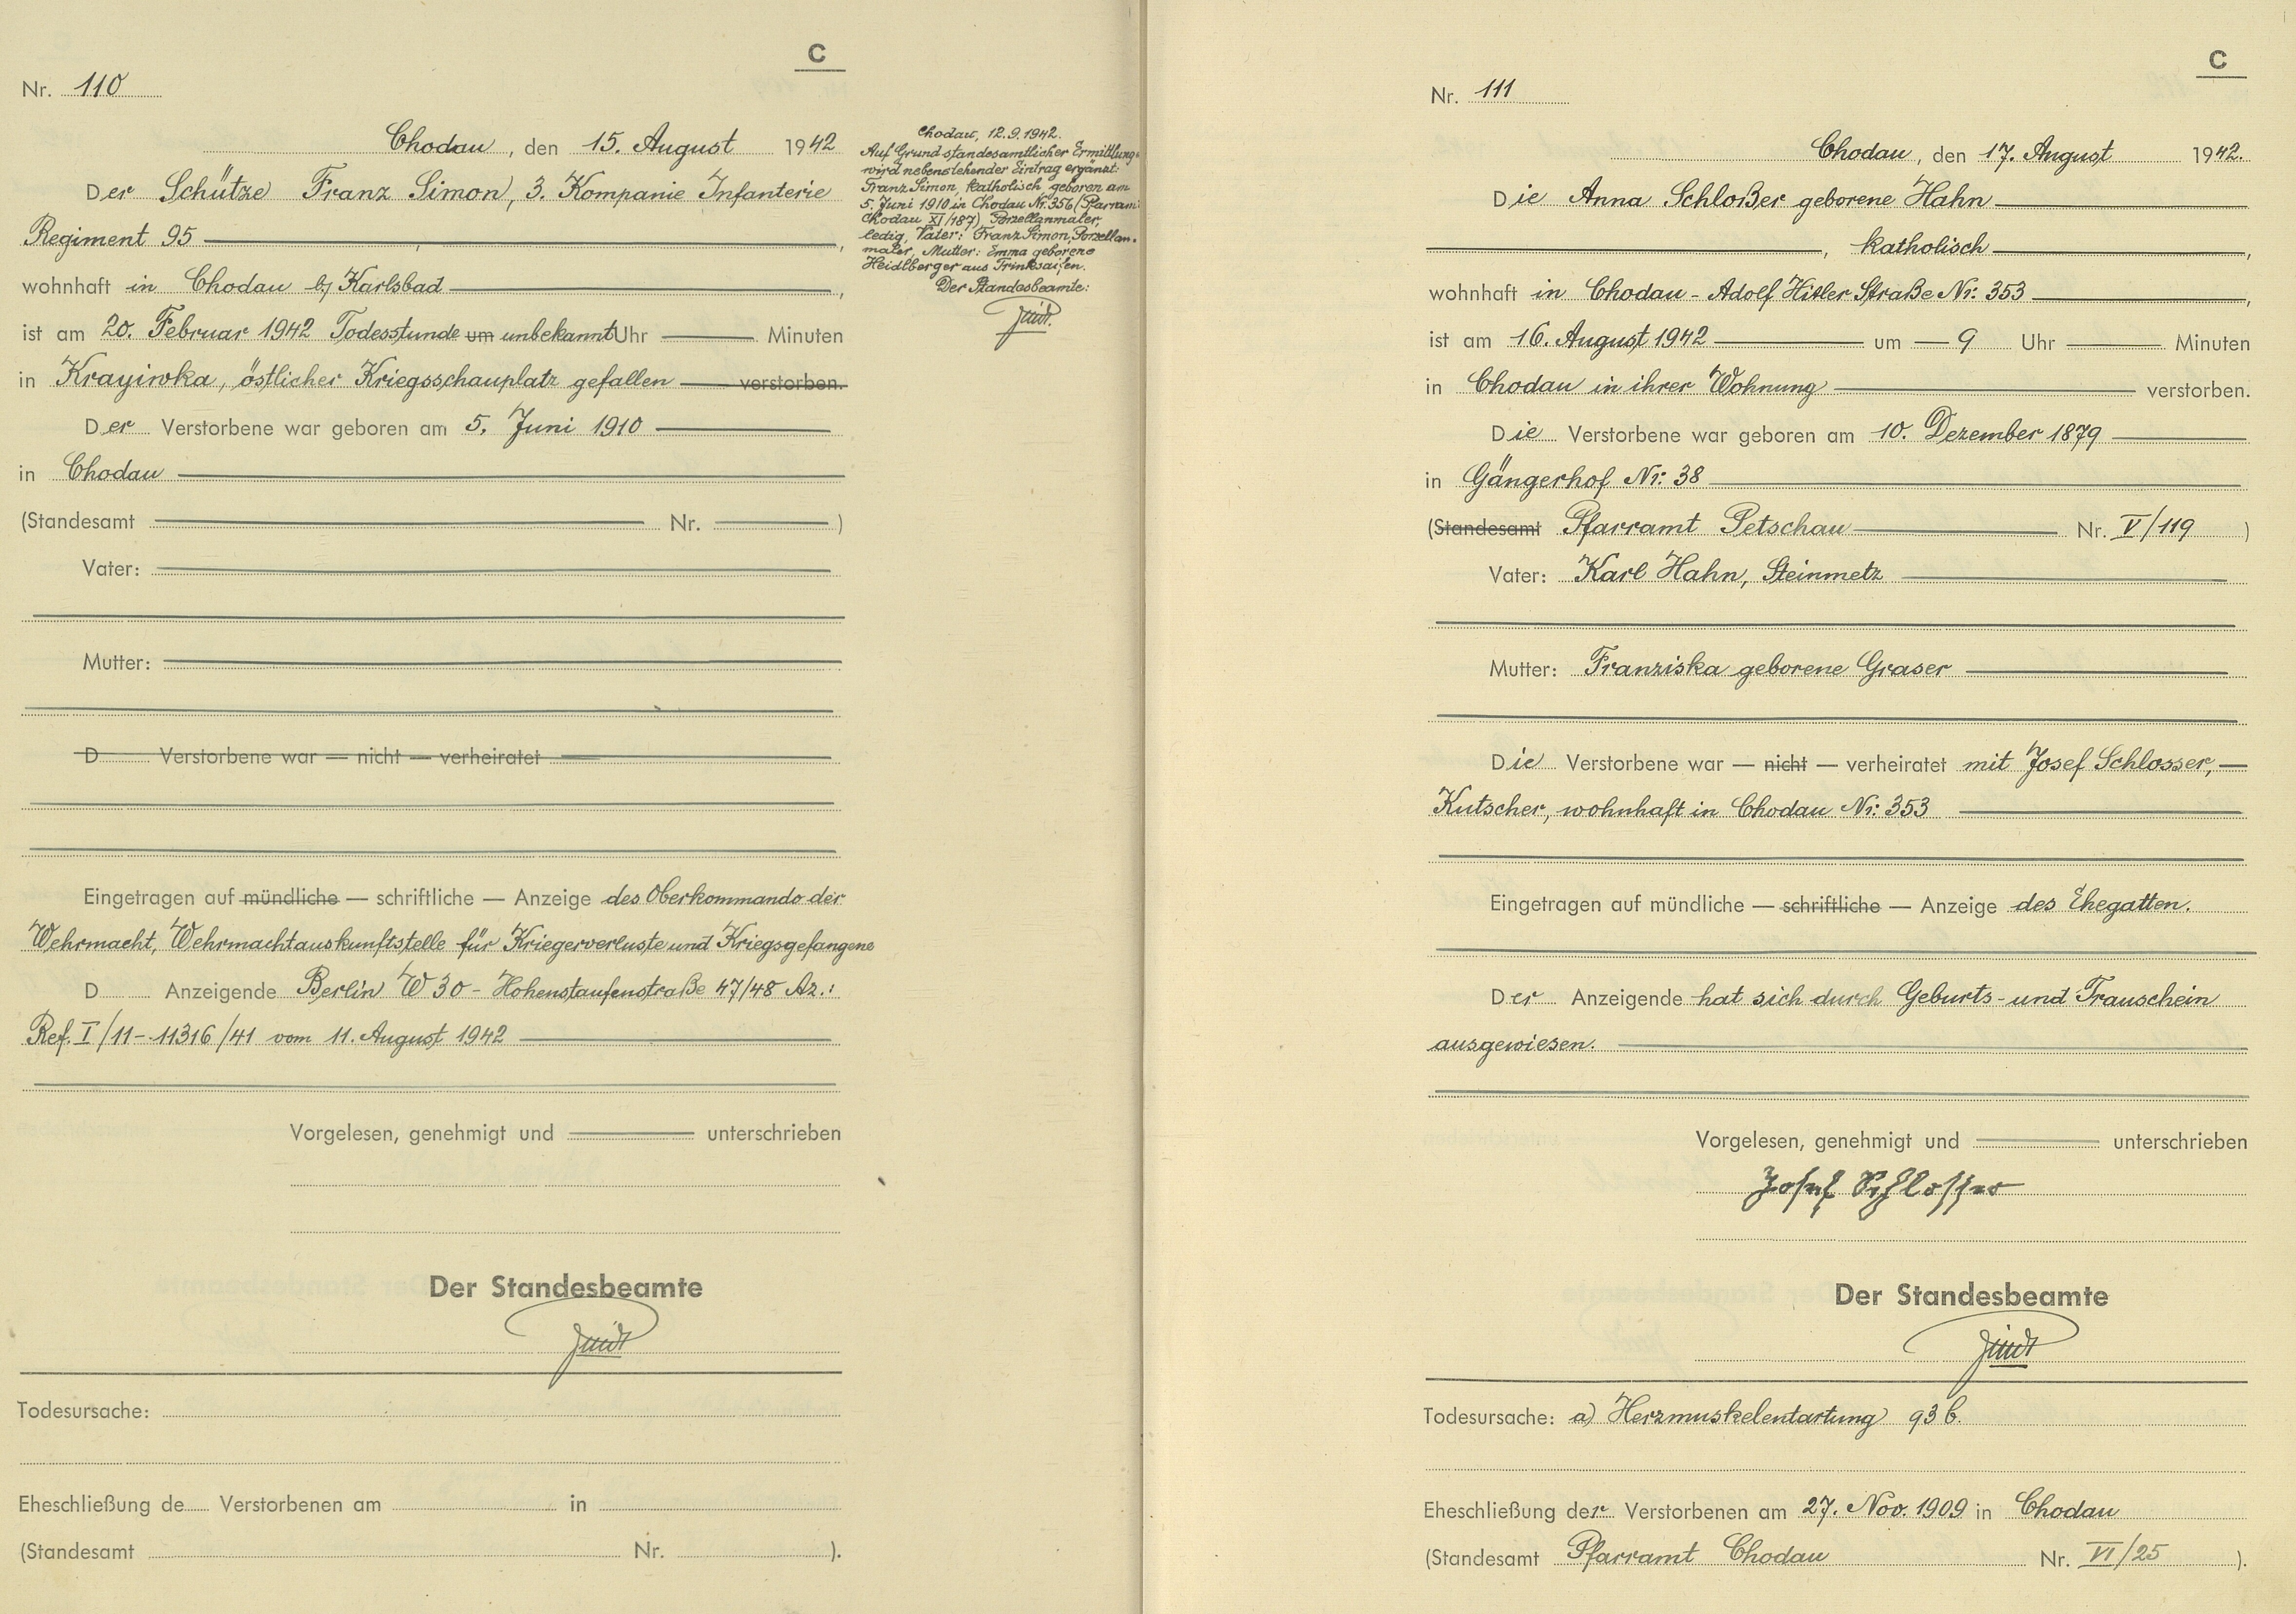 C
Nr. 110
Chodau, den 15. August 1942
Der Schütze Franz Simon, 3. Kompanie Infanterie
Regiment 95,
wohnhaft in Chodau b/ Karlsbad,
ist am 20. Februar 1942 Todesstunde um unbekannt Uhr Minuten
in Krayiwka, östlicher Kriegsschauplatz gefallen verstorben.
Der Verstorbene war geboren am 5. Juni 1910
in Chodau
(Standesamt Nr. )
Vater:
Mutter:
D Verstorbene war — nicht — verheiratet
Eingetragen auf mündliche — schriftliche — Anzeige des Oberkommando der
Wehrmacht, Wehrmachtauskunftstelle für Kriegerverluste und Kriegsgefangene
D Anzeigende Berlin W 30 - Hohenstaufenstraße 47/48 Az.:
Ref. I/11-11316/41 vom 11. August 1942
Vorgelesen, genehmigt und unterschrieben
Der Standesbeamte
Todesursache:
Eheschließung de Verstorbenen am in
(Standesamt Nr. ).
Chodau, 12.9.1942.
Auf Grund standesamtlicher Ermittlung
wird nebenstehender Eintrag ergänzt:
Franz Simon, katholisch, geboren am
5. Juni 1910 in Chodau Nr. 356 (Pfarramt
Chodau XI/187), Porzellanmaler,
ledig, Vater: Franz Simon, Porzellan-
maler, Mutter: Emma geborene
Heidlberger aus Trinksaifen.
Der Standesbeamte:
C
Nr. 111
Chodau, den 17. August 1942.
Die Anna Schloßer geborene Hahn
, katholisch,
wohnhaft in Chodau - Adolf Hitler Straße Nr: 353,
ist am 16. August 1942 um 9 Uhr Minuten
in Chodau in ihrer Wohnung verstorben.
Die Verstorbene war geboren am 10. Dezember 1879
in Gängerhof Nr: 38
(Standesamt Pfarramt Petschau Nr. V/119 )
Vater: Karl Hahn, Steinmetz
Mutter: Franziska geborene Graser
Die Verstorbene war — nicht — verheiratet mit Josef Schlosser,
Kutscher, wohnhaft in Chodau Nr: 353
Eingetragen auf mündliche — schriftliche — Anzeige des Ehegatten.
Der Anzeigende hat sich durch Geburts- und Trauschein
ausgewiesen.
Vorgelesen, genehmigt und unterschrieben
Josef Schlosser
Der Standesbeamte
Todesursache: a) Herzmuskelentartung 93 b.
Eheschließung der Verstorbenen am 27. Nov. 1909 in Chodau
(Standesamt Pfarramt Chodau Nr. VI/25 ).